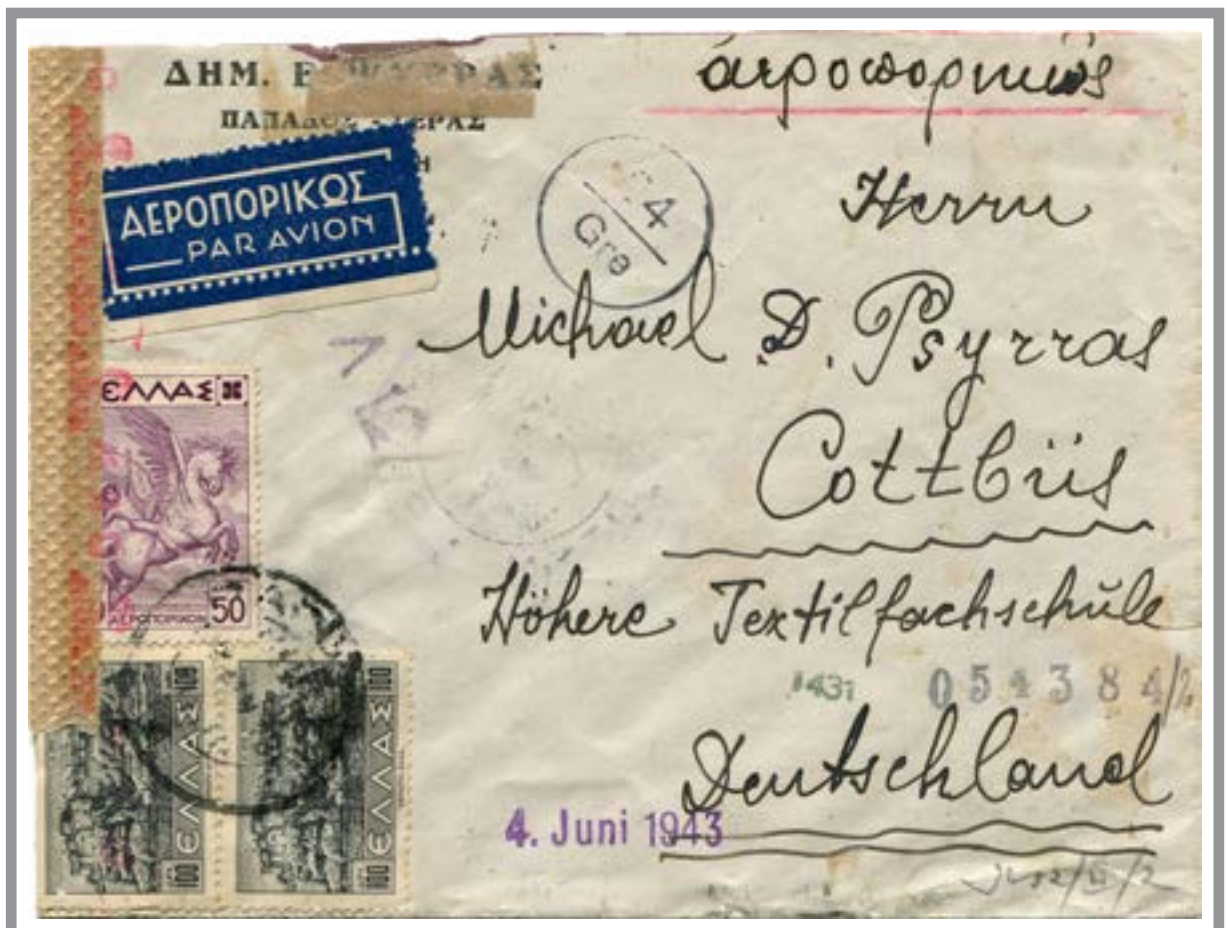 ΔΗΜ.
ἀεροπορικῶς
ΑΕΡΟΠΟΡΙΚΩΣ
PAR AVION
4
Gre
Herrn
Michael D. Psyrras
Cottbüs
Höhere Textilfachschüle
1431 054384/2
Deutschland
4. Juni 1943
ΕΛΛΑΣ
ΑΕΡΟΠΟΡΙΚΟΝ 50
100 ΕΛΛΑΣ 100
100 ΕΛΛΑΣ 100